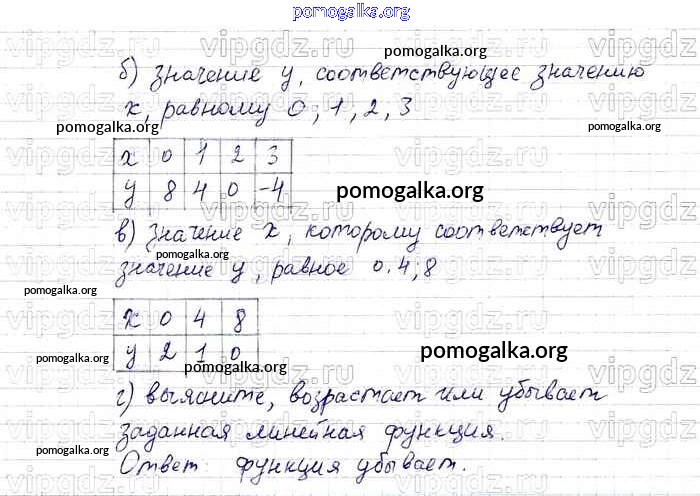 pomogalka.org
vipgdz.ru
pomogalka.org
б) значение y, соответствующее значению
x, равному 0, 1, 2, 3
pomogalka.org
pomogalka.org
x 0 1 2 3
y 8 4 0 -4
pomogalka.org
в) значение x, которому соответствует
pomogalka.org
значение y, равное 0.4; 8
pomogalka.org
x 0 4 8
y 2 1 0
pomogalka.org
pomogalka.org
г) выясните, возрастает или убывает
заданная линейная функция.
pomogalka.org
Ответ: функция убывает.
pomogalka.org